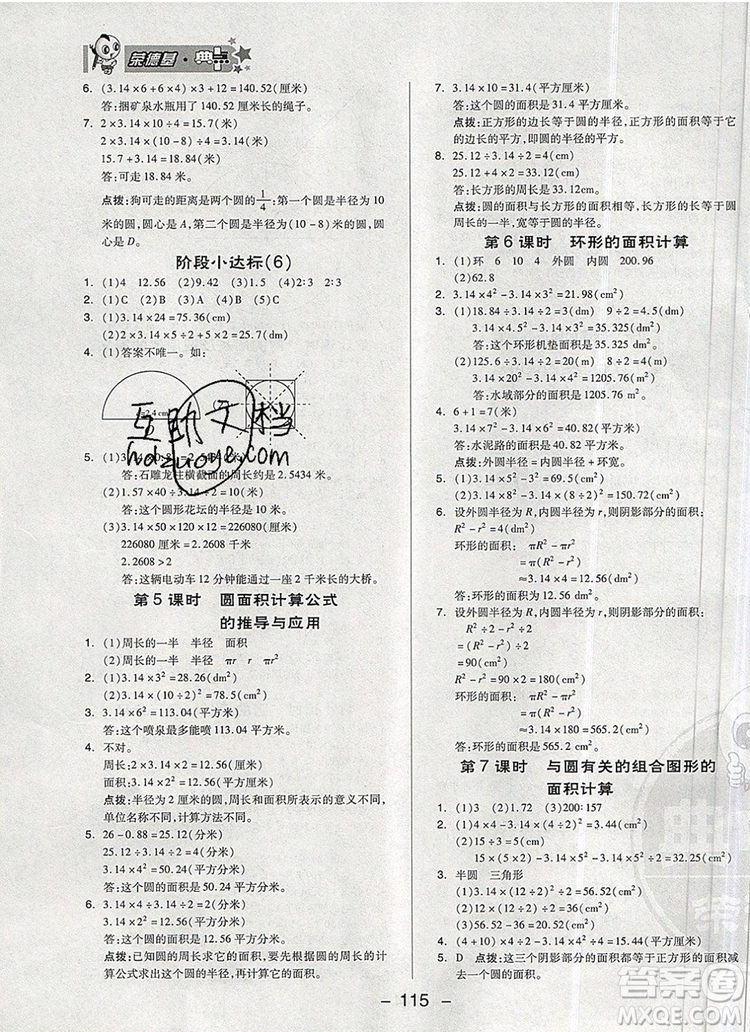 荣德基·典中点
6. (3.14×6+6×4)×4=140.52(厘米)
答:捆矿泉水瓶用了 140.52 厘米长的绳子。
7. 2×3.14×10÷4=15.7(米)
2×3.14×(10-8)÷4=3.14(米)
15.7+3.14=18.84(米)
答:可走 18.84 米。
点拨:狗可走的距离是两个圆的1/4:第一个圆是半径为 10
米的圆,圆心是 A。第二个圆是半径为(10-8)米的圆,圆
心是 D。
阶段小达标(6)
1. (1)4 12.56 (2)9.42 (3)1.5 (4)2∶3 2∶3
2. (1)C (2)A (3)B (4)B
3. (1)3.14×24=75.36(cm)
(2)2×3.14×5÷2+5×2=25.7(dm)
4. (1)答案不唯一。如:
d=2.4 cm
互助文档
hdzuoye.com
答:石雕龙柱横截面的周长约是 2.5434 米。
答:这个圆形花坛的半径是 10 米。
(3)3.14×50×120×12=226080(厘米)
226080 厘米=2.2608 千米
2.2608>2
答:这辆电动车 12 分钟能通过一座 2 千米长的大桥。
第 5 课时 圆面积计算公式
的推导与应用
1. (1)周长的一半 半径 面积
(2)周长的一半 半径 πr r πr²
2. (1)3.14×3²=28.26(dm²)
(2)3.14×(10÷2)²=78.5(cm²)
3. 3.14×6²=113.04(平方米)
答:这个喷泉最多能喷 113.04 平方米。
4. 不对。
周长:2×3.14×2=12.56(厘米)
面积:3.14×2²=12.56(平方厘米)
点拨:半径为 2 厘米的圆,周长和面积的意义不同,
单位名称不同,计算方法不同。
5. 26-0.88=25.12(分米)
25.12÷3.14÷2=4(分米)
3.14×4²=50.24(平方分米)
答:这个圆的面积是 50.24 平方分米。
6. 12.56÷3.14÷2=2(分米)
3.14×2²=12.56(平方分米)
答:这个圆的面积是 12.56 平方分米。
点拨:已知圆的周长求它的面积,要先根据圆的周长的计
算公式求出这个圆的半径,再计算它的面积。
7. 3.14×10=31.4(平方厘米)
答:这个圆的面积是 31.4 平方厘米。
点拨:正方形的边长等于圆的半径,正方形的面积等于它
的边长的平方,即圆的半径的平方。
8. 25.12÷3.14÷2=4(cm)
25.12+4×2=33.12(cm)
答:长方形的周长是 33.12cm。
点拨:圆的面积与长方形的面积相等,长方形的长等于圆
周长的一半,宽等于圆的半径。
第 6 课时 环形的面积计算
1. (1)环 6 10 4 外圆 内圆 200.96
(2)62.8
2. 3.14×4²-3.14×3²=21.98(cm²)
3. (1)18.84÷3.14÷2=3(dm) 9÷2=4.5(dm)
3.14×4.5²-3.14×3²=35.325(dm²)
答:这个环形机垫面积是 35.325 dm²。
(2)125.6÷3.14÷2=20(m) 8÷2=4(m)
3.14×20²-3.14×4²=1205.76(m²)
答:水域部分的面积是 1205.76 m²。
4. 6+1=7(米)
3.14×7²-3.14×6²=40.82(平方米)
答:水泥路的面积是 40.82 平方米。
点拨:外圆半径=内圆半径+环宽。
5. (1)3.14×8²÷2-3.14×
(2)3.14×8²-3.14×(8÷2)²=150.72(cm²)
6. 设外圆半径为 R,内圆半径为 r,则阴影部分的面积:
R²-r²=4(cm²)
环形的面积: πR²-πr²
=π(R²-r²)
≈3.14×4=12.56(cm²)
答:环形的面积约是 12.56 cm²。
7. 设外圆半径为 R,内圆半径为 r,则阴影部分的面积:
R²÷2-r²÷2
=(R²-r²)÷2
=90(cm²)
R²-r²=180(cm²)
环形的面积: πR²-πr²
=π(R²-r²)
≈3.14×180=565.2(cm²)
答:环形的面积约是 565.2 cm²。
第 7 课时 与圆有关的组合图形的
面积计算
1. (1)3 (2)1.72 (3)200∶157
2. (1)4×4-3.14×(4÷2)²=3.44(cm²)
(2)15÷3=5(cm)
15×(5÷2)-3.14×(5÷2)²÷2=27.6875(cm²)
3. 半圆 三角形
(1)3.14×(20÷2)²÷2=157(cm²)
(2)20×(20÷2)÷2=100(cm²)
(3)157-100=57(cm²)
4. (4+10)×4÷2-3.14×4²÷4=15.44(cm²)
5. D 点拨:这三个阴影部分的面积都是正方形的面积减
去一个圆的面积。
- 115 -
答案圈
MXQE.COM